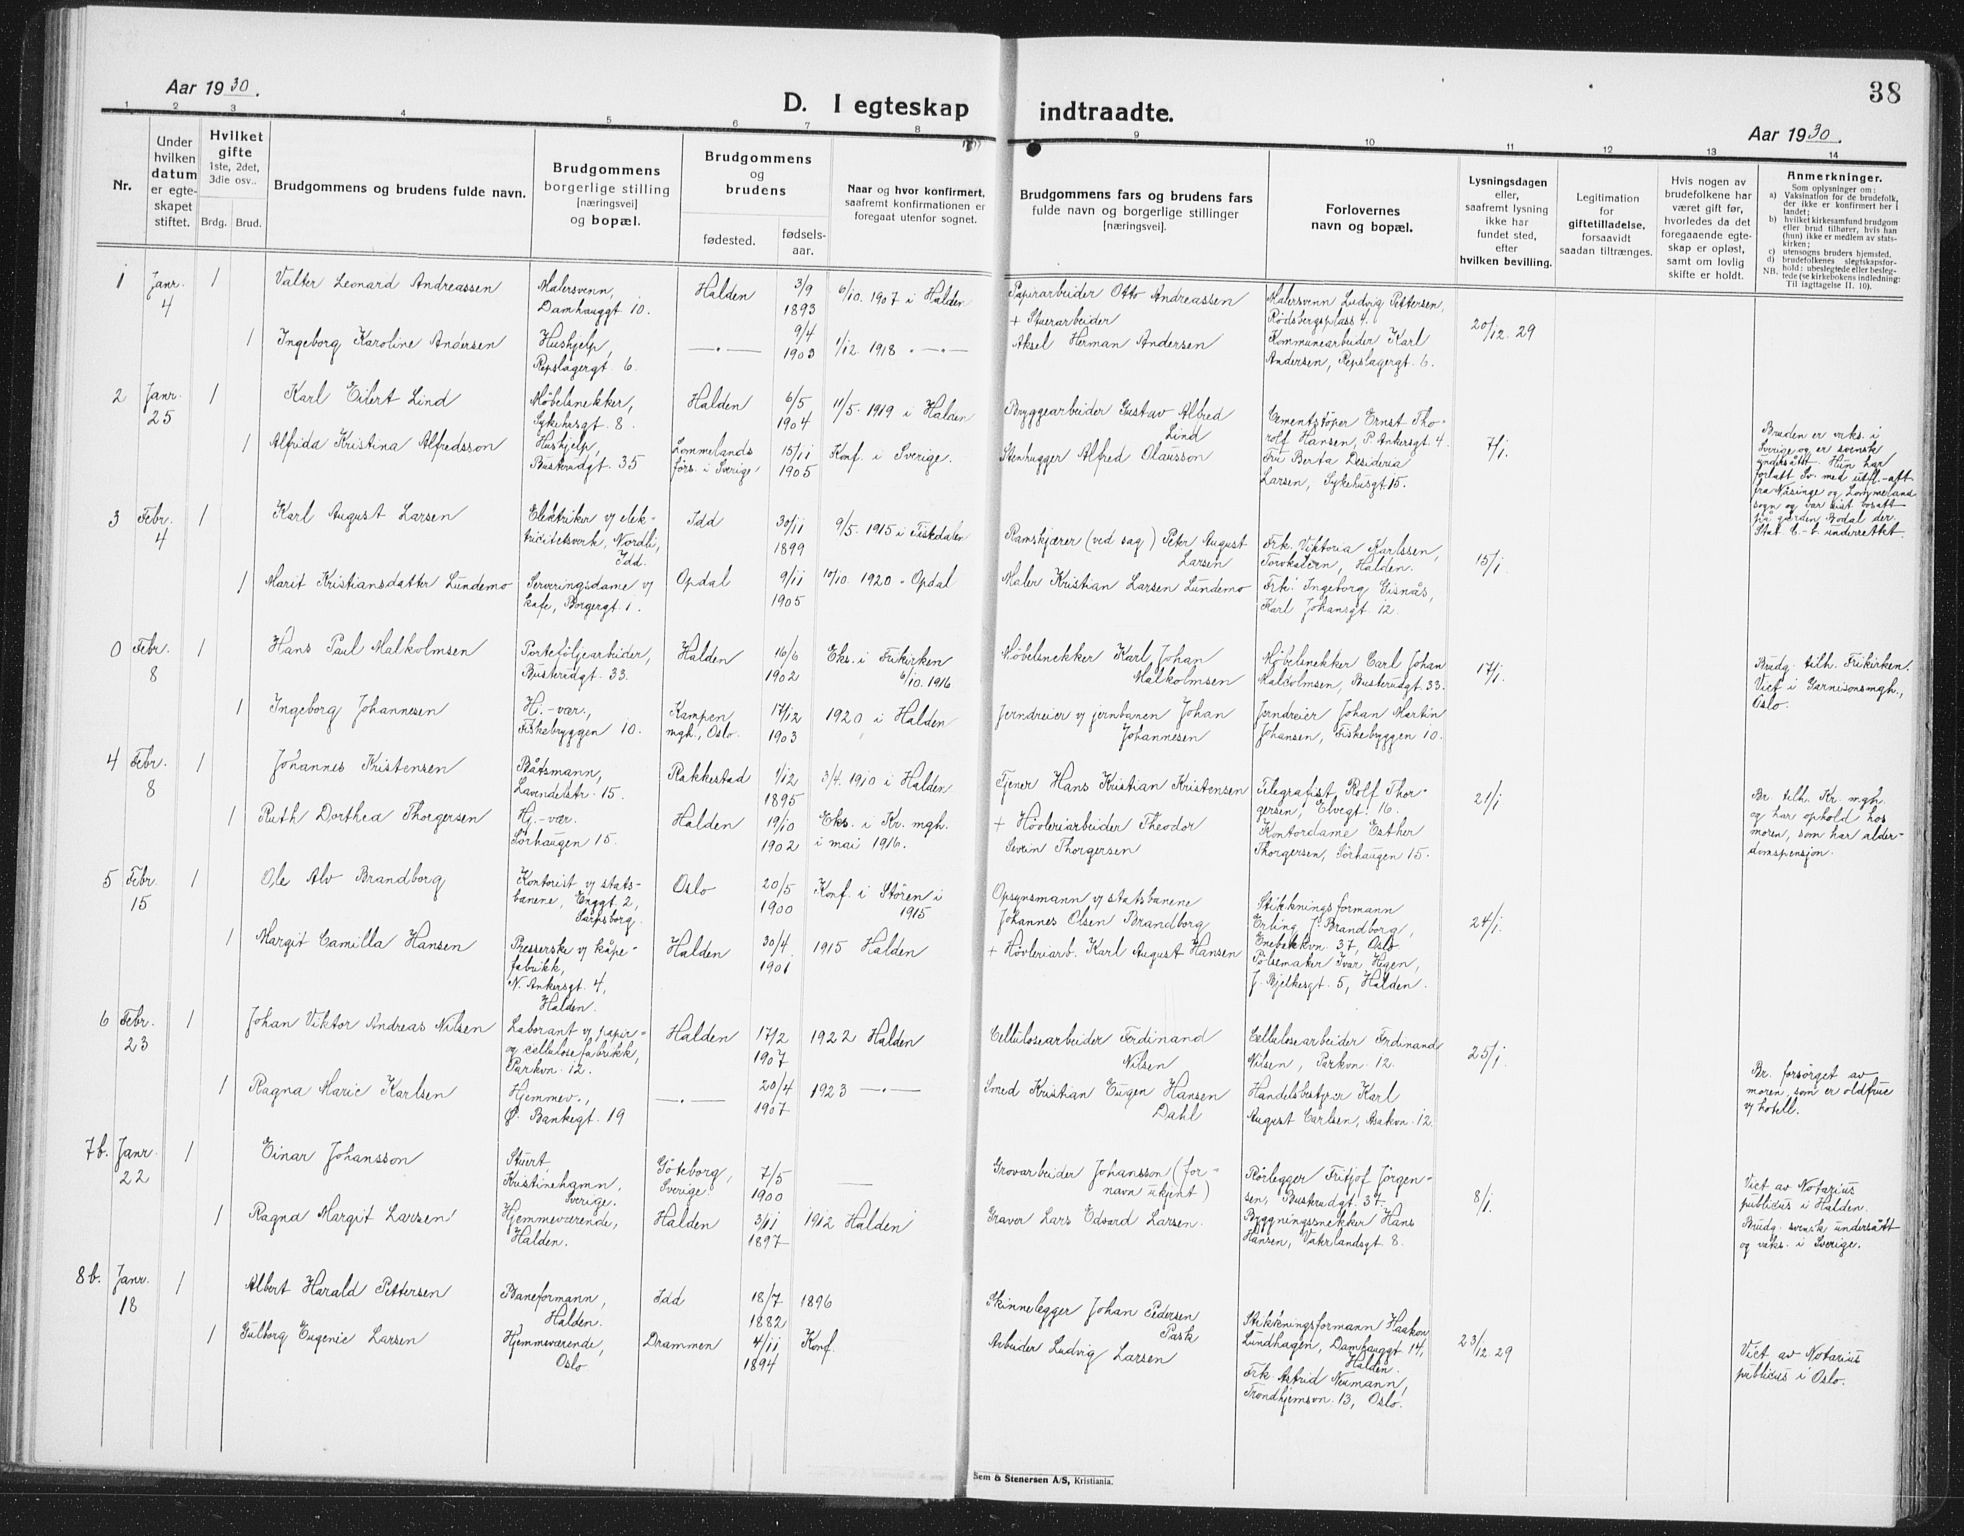 Aar 1930.
D. I egteskap indtraadte.
38
Aar 1930.
1 2 3 4 5 6 7 8 9 10 11 12 13 14
Nr.
Under hvilken datum er egteskapet stiftet.
Hvilket gifte 1ste, 2det, 3die osv..
Brdg. Brud.
Brudgommens og brudens fulde navn.
Brudgommens borgerlige stilling [næringsvei] og bopæl.
Brudgommens og brudens
fødested.
fødselsaar.
Naar og hvor konfirmert, saafremt konfirmationen er foregaat utenfor sognet.
Brudgommens fars og brudens fars fulde navn og borgerlige stillinger [næringsvei].
Forlovernes navn og bopæl.
Lysningsdagen eller, saafremt lysning ikke har fundet sted, efter hvilken bevilling.
Legitimation for giftetilladelse, forsaavidt saadan tiltrænges.
Hvis nogen av brudefolkene har været gift før, hvorledes da det foregaaende egteskap er opløst, samt om lovlig skifte er holdt.
Anmerkninger.
Som oplysninger om:
a) Vaksination for de brudefolk, der ikke er konfirmert her i landet;
b) hvilket kirkesamfund brudgom eller brud tilhører, hvis han (hun) ikke er medlem av statskirken;
c) utensogns bruders hjemsted,
d) brudefolkenes slegtskapsforhold: ubeslegtede eller beslegtede (se kirkebokens indledning: Til iagttagelse II. 10).
NB.
1 Janr. 4 1 Valter Leonard Andreassen
Malersvenn, Damhauggt 10.
Halden 3/9 1893 6/10. 1907 i Halden
Papirarbeider Otto Andreassen
Malersvenn Ludvig Pettersen, Rødsbergsplass 4.
20/12. 29
1 Ingeborg Karoline Andersen
Hushjelp, Repslagergt. 6.
—„— 9/4 1903 1/12. 1918 „ —„—
+ Stuerarbeider Aksel Herman Andersen
Kommunearbeider Karl Andersen, Repslagergt. 6.
2 Janr. 25 1 Karl Eilert Lind
Møbelsnekker, Sykehusgt. 8.
Halden 6/5 1904 11/5. 1919 i Halden
Bryggearbeider Gustav Alfred Lind
Cementstøper Ernst Thorolf Hansen, P. Ankersgt. 4.
7/1.
1 Alfrida Kristina Alfredsson
Hushjelp, Busterudgt. 35
Lommelands førs. i Sverige 15/11 1905 Konf. i Sverige.
Stenhugger Alfred Olausson
Fru Berta Desideria Larsen, Sykehusgt. 15.
Bruden er vaks. i Sverige og er svensk undersått. Hun har forlatt Sv. med utfl.-att fra Näsinge og Lommeland sogn og var sist bosatt på gården Bodal der.
3 Febr. 4 1 Karl August Larsen
Elektriker v/ elektricitetsverk, Nordli, Idd.
Idd 30/11 1899 9/5. 1915 i Tistedalen
Ramskjærer (ved sag) Peter August Larsen
Frk. Viktoria Karlssen, Torvkaféen, Halden.
15/1.
1 Marit Kristiansdatter Lundemo
Serveringsdame v/ kafe, Borgergt. 1.
Opdal 9/11 1905 10/10. 1920 „ Opdal
Maler Kristian Larsen Lundemo
Frk. Ingeborg Gisnås, Karl Johansgt. 12.
0 Febr. 8 1 Hans Paul Malkolmsen
Porteføljearbeider, Busterudgt. 33.
Halden 16/6 1902 Eks. i Frikirken 6/10. 1916
Møbelsnekker Karl Johan Malkolmsen
Møbelsnekker Carl Johan Malcolmsen, Busterudgt. 33.
17/1.
Brudg. tilh. Frikirken. Viet i Garnisonsmgh., Oslo.
1 Ingeborg Johannesen
Hj.-vær., Fiskebryggen 10.
Kampen mgh., Oslo. 17/12 1903 1920 i Halden
Jerndreier v/ jernbanen Johan Johannesen
Jerndreier Johan Martin Johansen, Fiskebryggen 10.
4 Febr. 8 1 Johannes Kristensen
Båtsmann, Lavendelstr. 15.
Rakkestad 1/12 1895 3/4. 1910 i Halden
Tjener Hans Kristian Kristensen
Telegrafist Rolf Thorgersen, Elvegt. 16.
21/1
1 Ruth Dorthea Thorgersen
Hj.-vær. Sørhaugen 15.
Halden 19/10 1902 Eks. i Kr. mgh. i mai 1916.
+ Høvleriarbeider Theodor Severin Thorgersen
Kontordame Esther Thorgersen, Sørhaugen 15.
Br. tilh. Kr. mgh. og har ophold hos moren, som har alderdomspensjon.
5 Febr. 15 1 Ole Alv Brandborg
Kontorist v/ statsbanene, Enggt. 2, Sarpsborg.
Oslo 20/5 1900 Konf. i Støren i 1915
Opsynsmann v/ statsbanene Johannes Olsen Brandborg
Stikkningsformann Erling J. Brandborg, Enebekkvn. 37, Oslo
24/1.
1 Margit Camilla Hansen
Presserske v/ kåpefabrikk, N. Ankersgt. 4, Halden.
Halden 30/4. 1901 1915 Halden
+ Høvleriarb. Karl August Hansen
Pølsemaker Ivar Hegen, J. Bjelkesgt. 5, Halden.
6 Febr. 23 1 Johan Viktor Andreas Nilsen
Laborant v/ papir- og cellulosefabrikk, Parkvn. 12.
Halden 17/2 1907 1922 Halden
Cellulosearbeider Ferdinand Nilsen
Cellulosearbeider Ferdinand Nilsen, Parkvn. 12.
25/1.
1 Ragna Marie Karlsen
Hjemmev., Ø. Bankegt. 19
—„— 20/4 1907 1923 —„—
Smed Kristian Eugen Hansen Dahl
Handelsbestyrer Karl August Carlsen, Asakvn. 12.
Br. forsørget av moren, som er oldfrue v/ hotell.
7b. Janr. 22 1 Einar Johansson
Stuert, Kristinehamn, Sverige.
Göteborg, Sverige. 7/5 1900 —
Grovarbeider Johansson (fornavn ukjent)
Rørlegger Fritjof Jørgensen, Busterudgt. 37.
8/1.
Viet av Notarius publicus i Halden. Brudg. svensk undersått og vaks. i Sverige.
1 Ragna Margit Larsen
Hjemmeværende, Halden.
Halden 3/11 1897 1912 Halden
Graver Lars Edvard Larsen.
Byggningssnekker Hans Hansen, Vaterlandsgt 8.
8b. Janr. 18 1 Albert Harald Pettersen
Baneformann, Halden.
Idd 18/7 1882 1896
Skinnelegger Johan Pedersen Pask
Stikkningsformann Haakon Lundhagen, Damhauggt. 14, Halden.
23/12. 29
1 Gulborg Eugenie Larsen
Hjemmeværende, Oslo
Drammen 4/11 1894 Konf.
Arbeider Ludvig Larsen
Frk. Astrid Neumann, Trondhjemsvn. 13, Oslo.
Viet av Notarius publicus i Oslo.
Sem & Stenersen A/S, Kristiania.